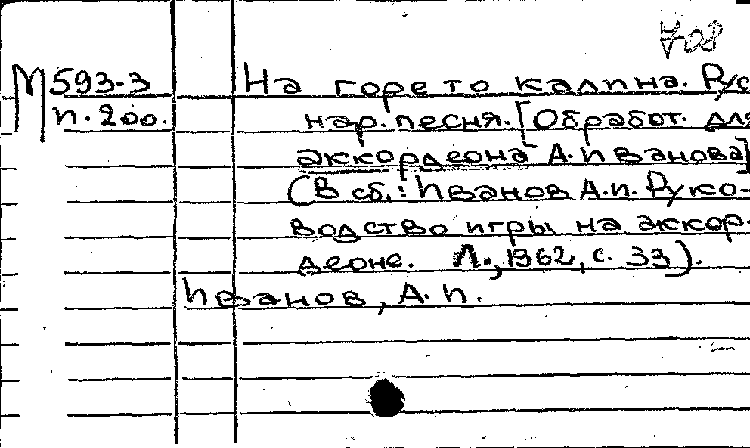 708
М 593-3 На горе то калина. Рус
п. 200. нар. песня. [Обработ. для
аккордеона А. Иванова]
(В сб.: Иванов А.И. Руко-
водство игры на аккор-
деоне. Л., 1962, с. 33).
Иванов, А. И.